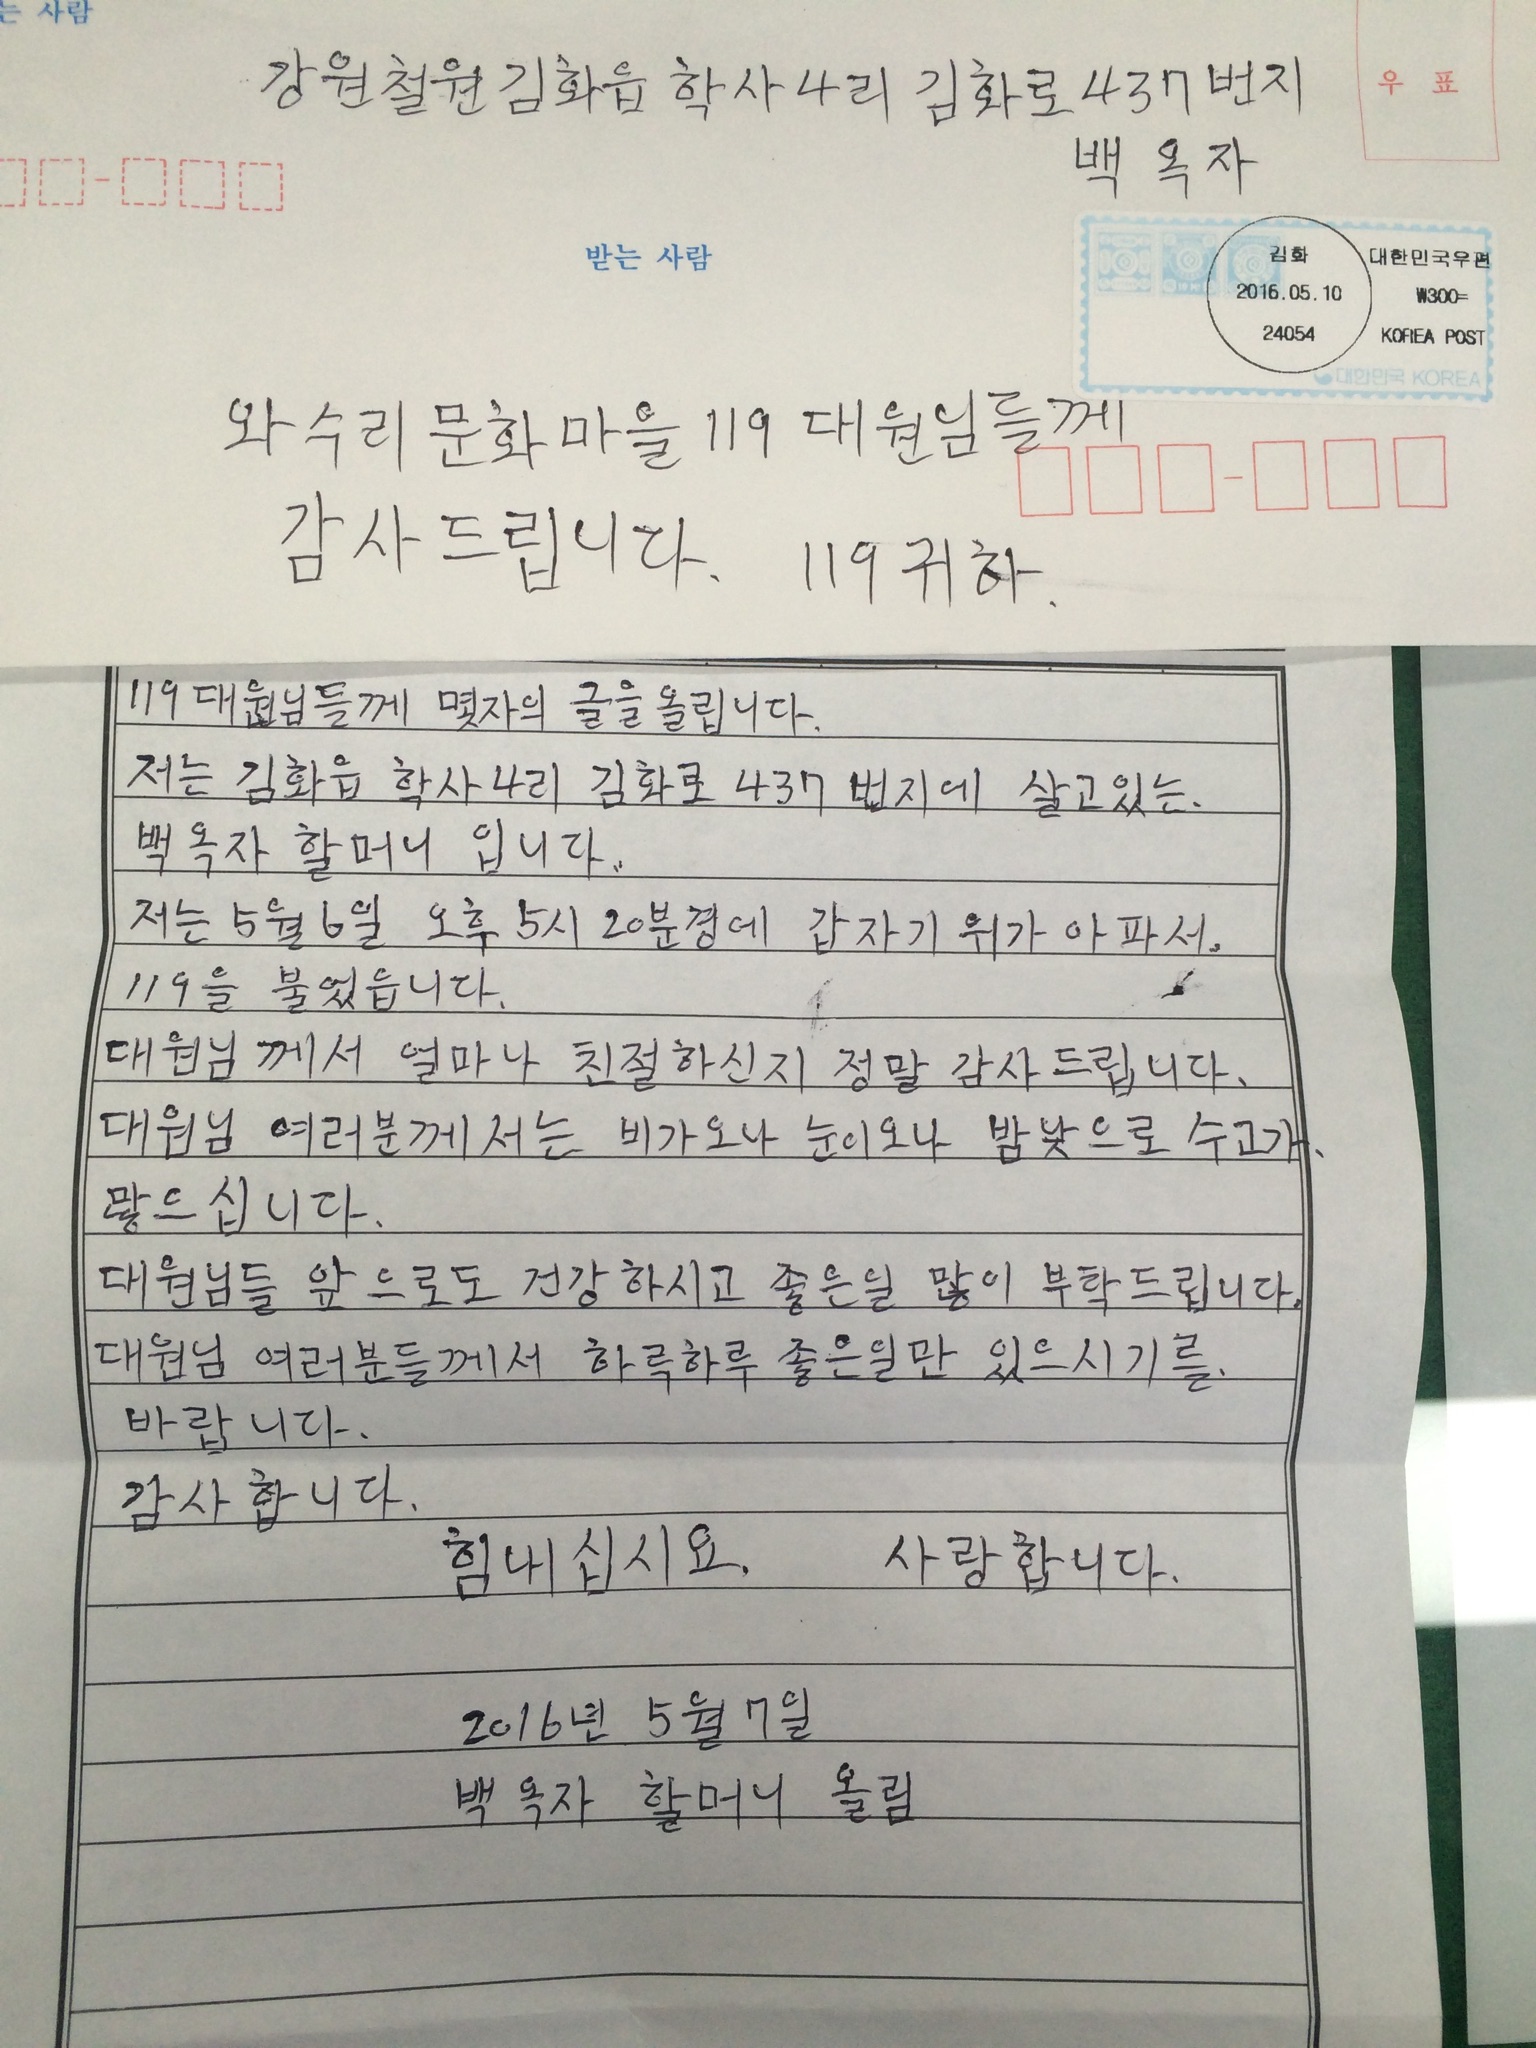 는 사람
강원철원김화읍 학사4리 김화로437번지
우 표
백 옥 자
받는 사람
김화
대한민국우편
2016.05.10
₩300=
24054
KOREA POST
대한민국 KOREA
와수리 문화마을 119 대원님들께
감사드립니다. 119귀하.
119대원님들께 몇자의 글을올립니다.
저는 김화읍 학사4리 김화로 437 번지에 살고있는.
백옥자 할머니 입니다.
저는5월6일 오후5시 20분경에 갑자기 위가 아파서.
119을 불었읍니다.
대원님께서 얼마나 친절하신지 정말 감사드립니다.
대원님 여러분께서는 비가오나 눈이오나 밤낮으로 수고가.
많으십니다.
대원님들 앞으로도 건강하시고 좋은일 많이 부탁드립니다.
대원님 여러분들께서 하룩하루 좋은일만 있으시기를.
바랍니다.
감사합니다.
힘내십시요. 사랑합니다.
2016년 5월7일
백옥자 할머니 올림